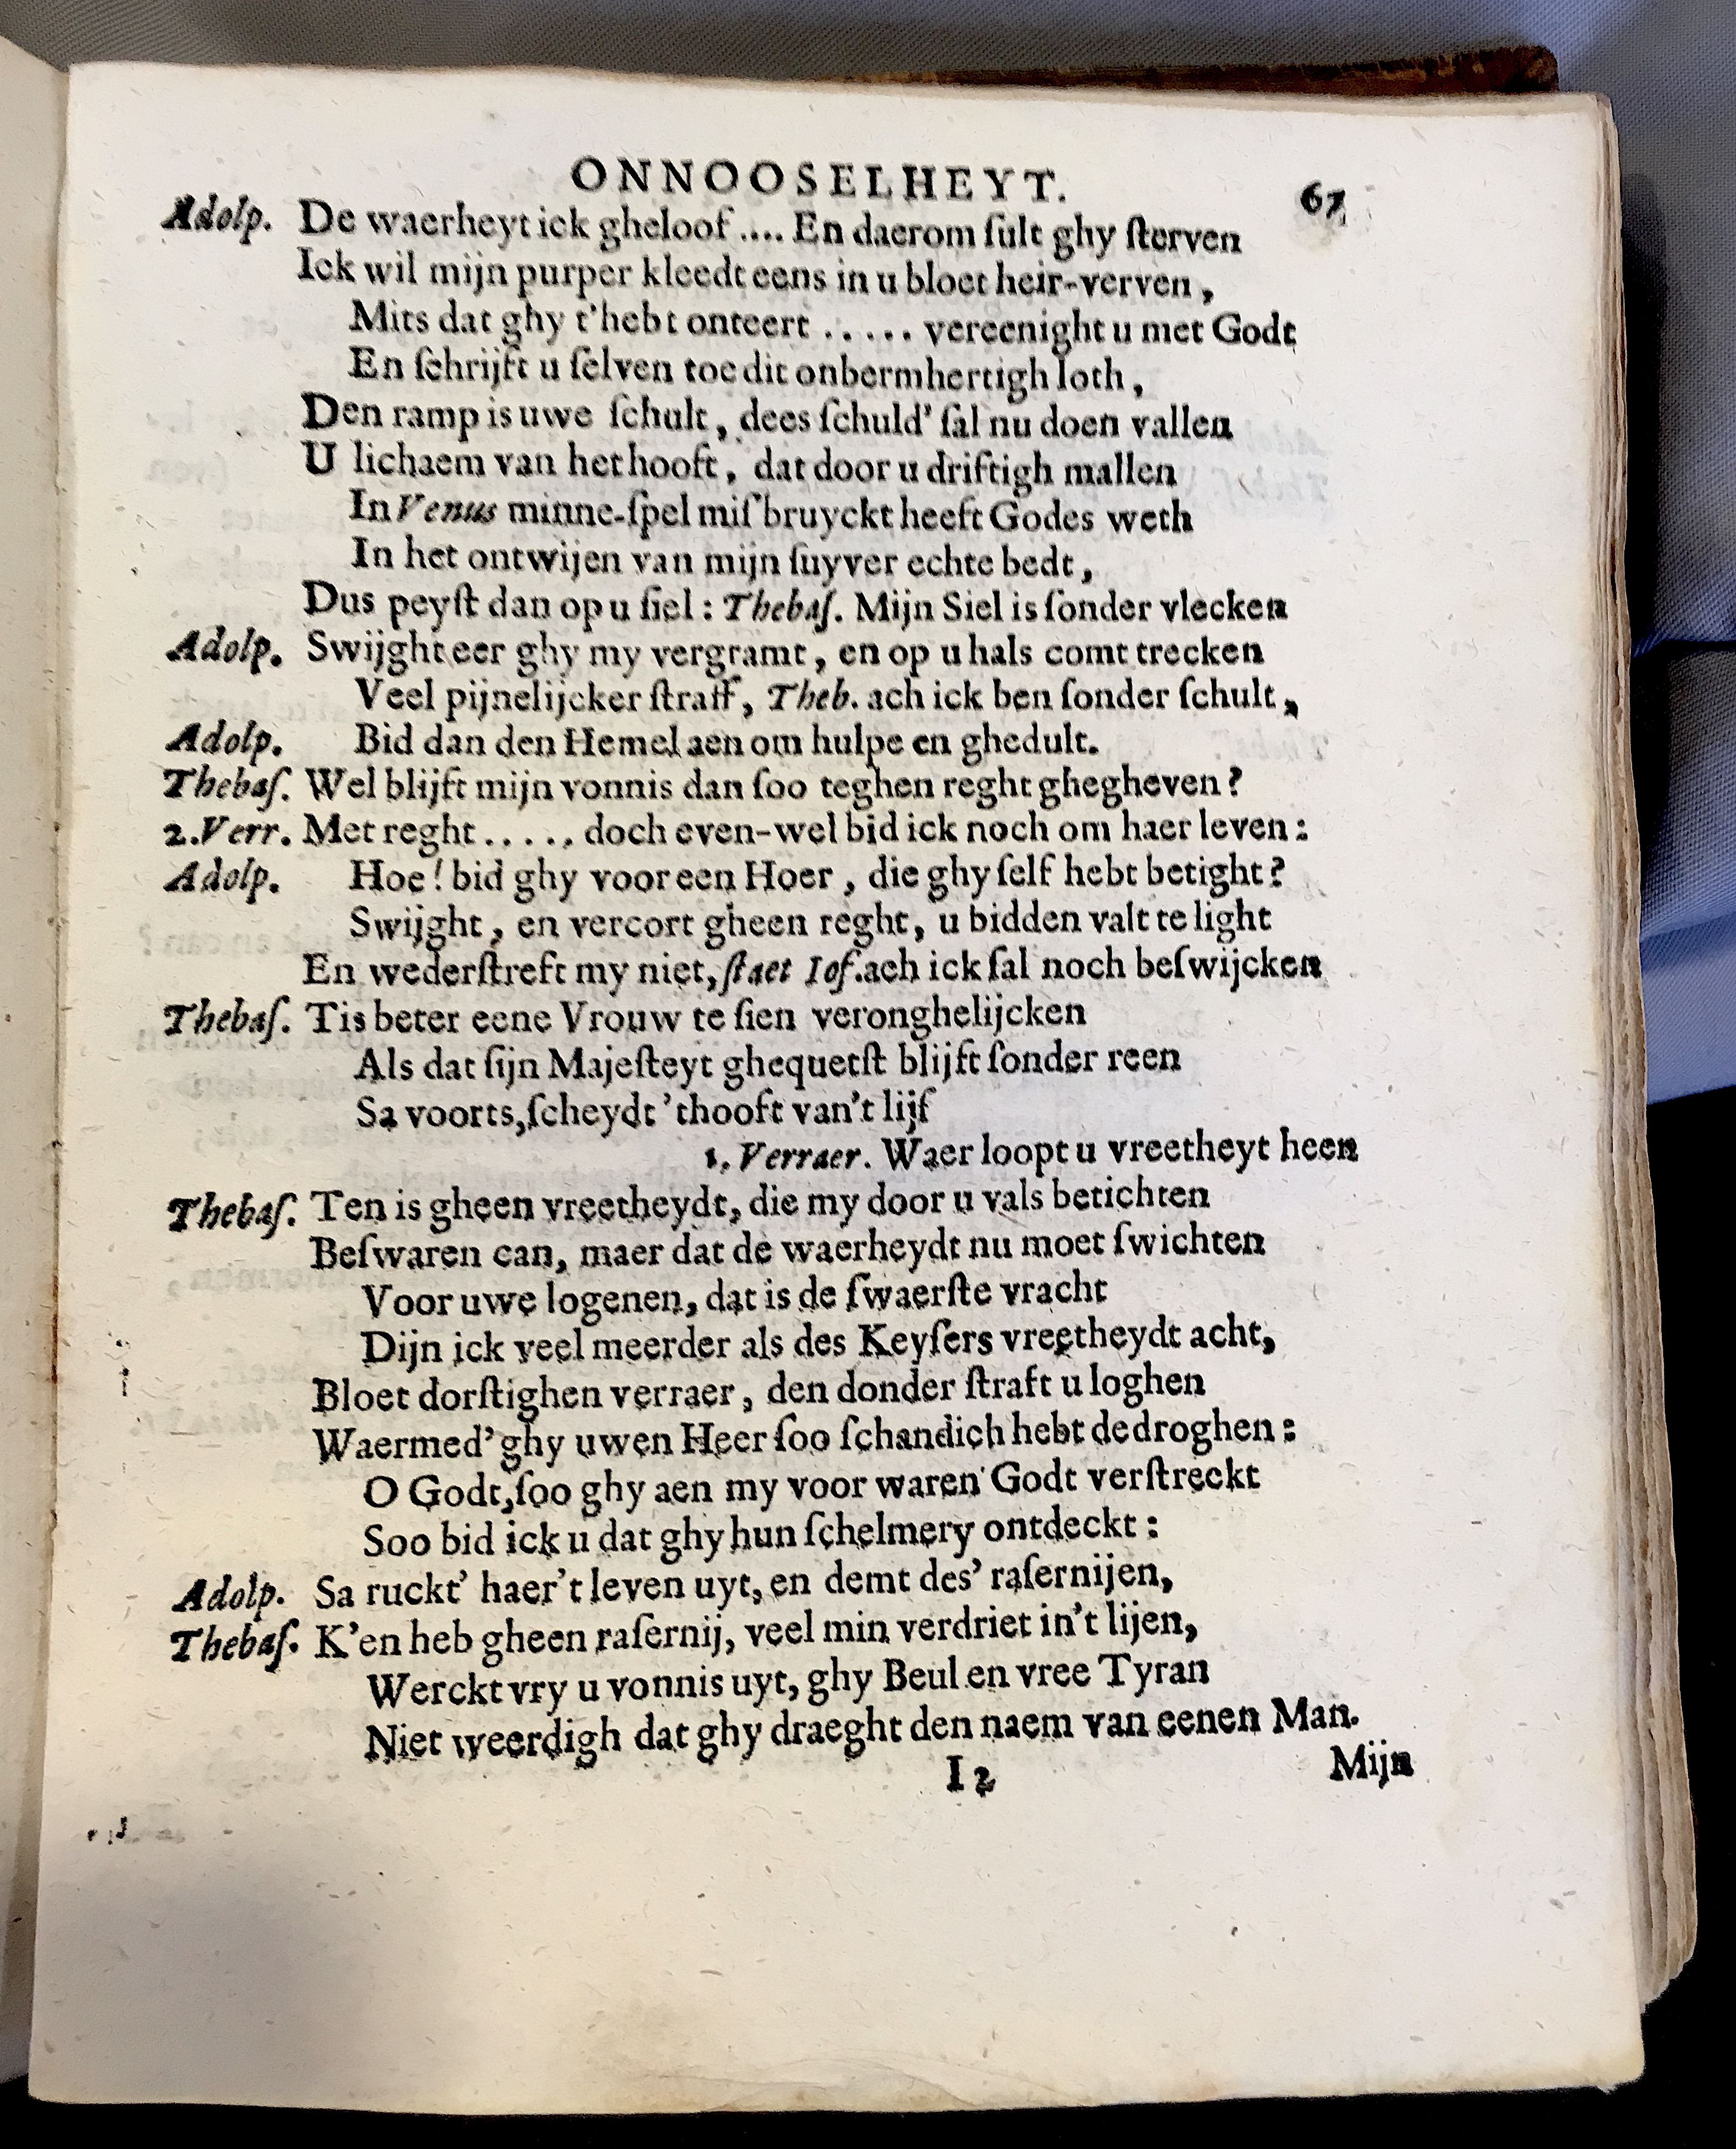 ONNOOSELHEYT. 67
Adolp. De waerheyt ick gheloof .... En daerom ſult ghy ſterven
Ick wil mijn purper kleedt eens in u bloet heir-verven,
Mits dat ghy t'hebt onteert ..... vereenight u met Godt
En ſchrijft u ſelven toe dit onbermhertigh loth,
Den ramp is uwe ſchult, dees ſchuld' ſal nu doen vallen
U lichaem van het hooft, dat door u driftigh mallen
In Venus minne-ſpel miſbruyckt heeft Godes weth
In het ontwijen van mijn ſuyver echte bedt,
Dus peyſt dan op u ſiel: Thebaſ. Mijn Siel is ſonder vlecken
Adolp. Swijght eer ghy my vergramt, en op u hals comt trecken
Veel pijnelijcker ſtraff, Theb. ach ick ben ſonder ſchult,
Adolp. Bid dan den Hemel aen om hulpe en ghedult.
Thebaſ. Wel blijft mijn vonnis dan ſoo teghen reght ghegheven?
2. Verr. Met reght ....., doch even-wel bid ick noch om haer leven:
Adolp. Hoe! bid ghy voor een Hoer, die ghy ſelf hebt betight?
Swijght, en vercort gheen reght, u bidden valt te light
En wederſtreft my niet, ſtaet Ioſ. ach ick ſal noch beſwijcken
Thebaſ. Tis beter eene Vrouw te ſien veronghelijcken
Als dat ſijn Majeſteyt ghequetſt blijft ſonder reen
Sa voorts, ſcheydt 'thooft van't lijf
1. Verraer. Waer loopt u vreetheyt heen
Thebaſ. Ten is gheen vreetheydt, die my door u vals betichten
Beſwaren can, maer dat de waerheydt nu moet ſwichten
Voor uwe logenen, dat is de ſwaerſte vracht
Dijn ick veel meerder als des Keyſers vreetheydt acht,
Bloet dorſtighen verraer, den donder ſtraft u loghen
Waermed' ghy uwen Heer ſoo ſchandich hebt dedroghen:
O Godt, ſoo ghy aen my voor waren Godt verſtreckt
Soo bid ick u dat ghy hun ſchelmery ontdeckt:
Adolp. Sa ruckt' haer't leven uyt, en demt des' raſernijen,
Thebaſ. K'en heb gheen raſernij, veel min verdriet in't lijen,
Werckt vry u vonnis uyt, ghy Beul en vree Tyran
Niet weerdigh dat ghy draeght den naem van eenen Man.
I 2 Mijn